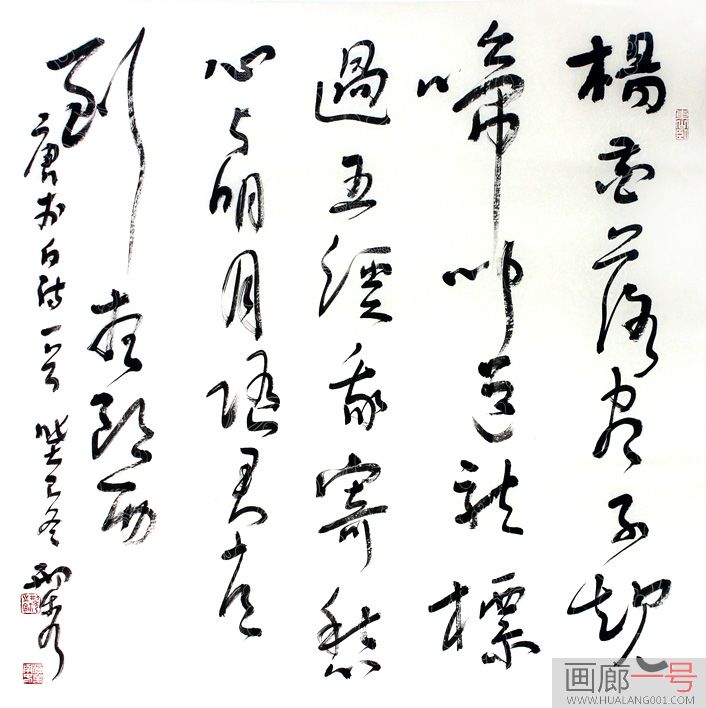 楊花落盡子規
啼聞道龍標
過五經我寄愁
心与明月隨君直
到夜郎西
唐李白詩一首 癸巳冬
画廊一号
WWW.HUALANG001.COM